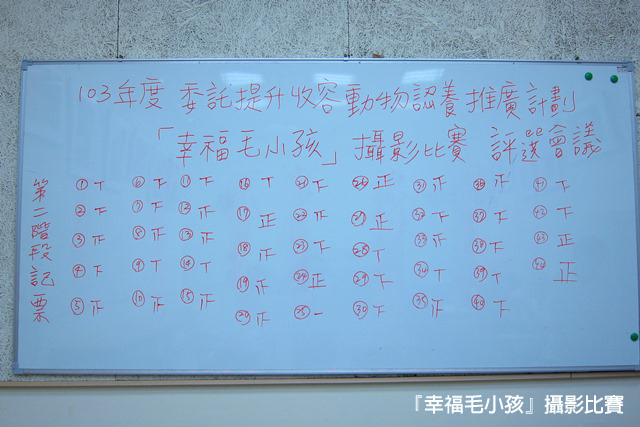 103年度 委託提升收容動物認養推廣計劃
「幸福毛小孩」攝影比賽 評選會議
第二階段記票
① 丅 ⑥ 下 ⑪ 下 ⑯ 丅 ㉑ 下 ㉖ 正 ㉛ 正 ㊱ 正 ㊶ 下
② 下 ⑦ 下 ⑫ 正 ⑰ 正 ㉒ 正 ㉗ 正 ㉜ 下 ㊲ 下 ㊷ 下
③ 正 ⑧ 正 ⑬ 正 ⑱ 正 ㉓ 下 ㉘ 丅 ㉝ 正 ㊳ 下 ㊸ 正
④ 下 ⑨ 丅 ⑭ 丅 ⑲ 正 ㉔ 正 ㉙ 下 ㉞ 丅 ㊴ 丅 ㊹ 正
⑤ 正 ⑩ 正 ⑮ 正 ⑳ 正 ㉕ 一 ㉚ 下 ㉟ 正 ㊵ 下
『幸福毛小孩』攝影比賽